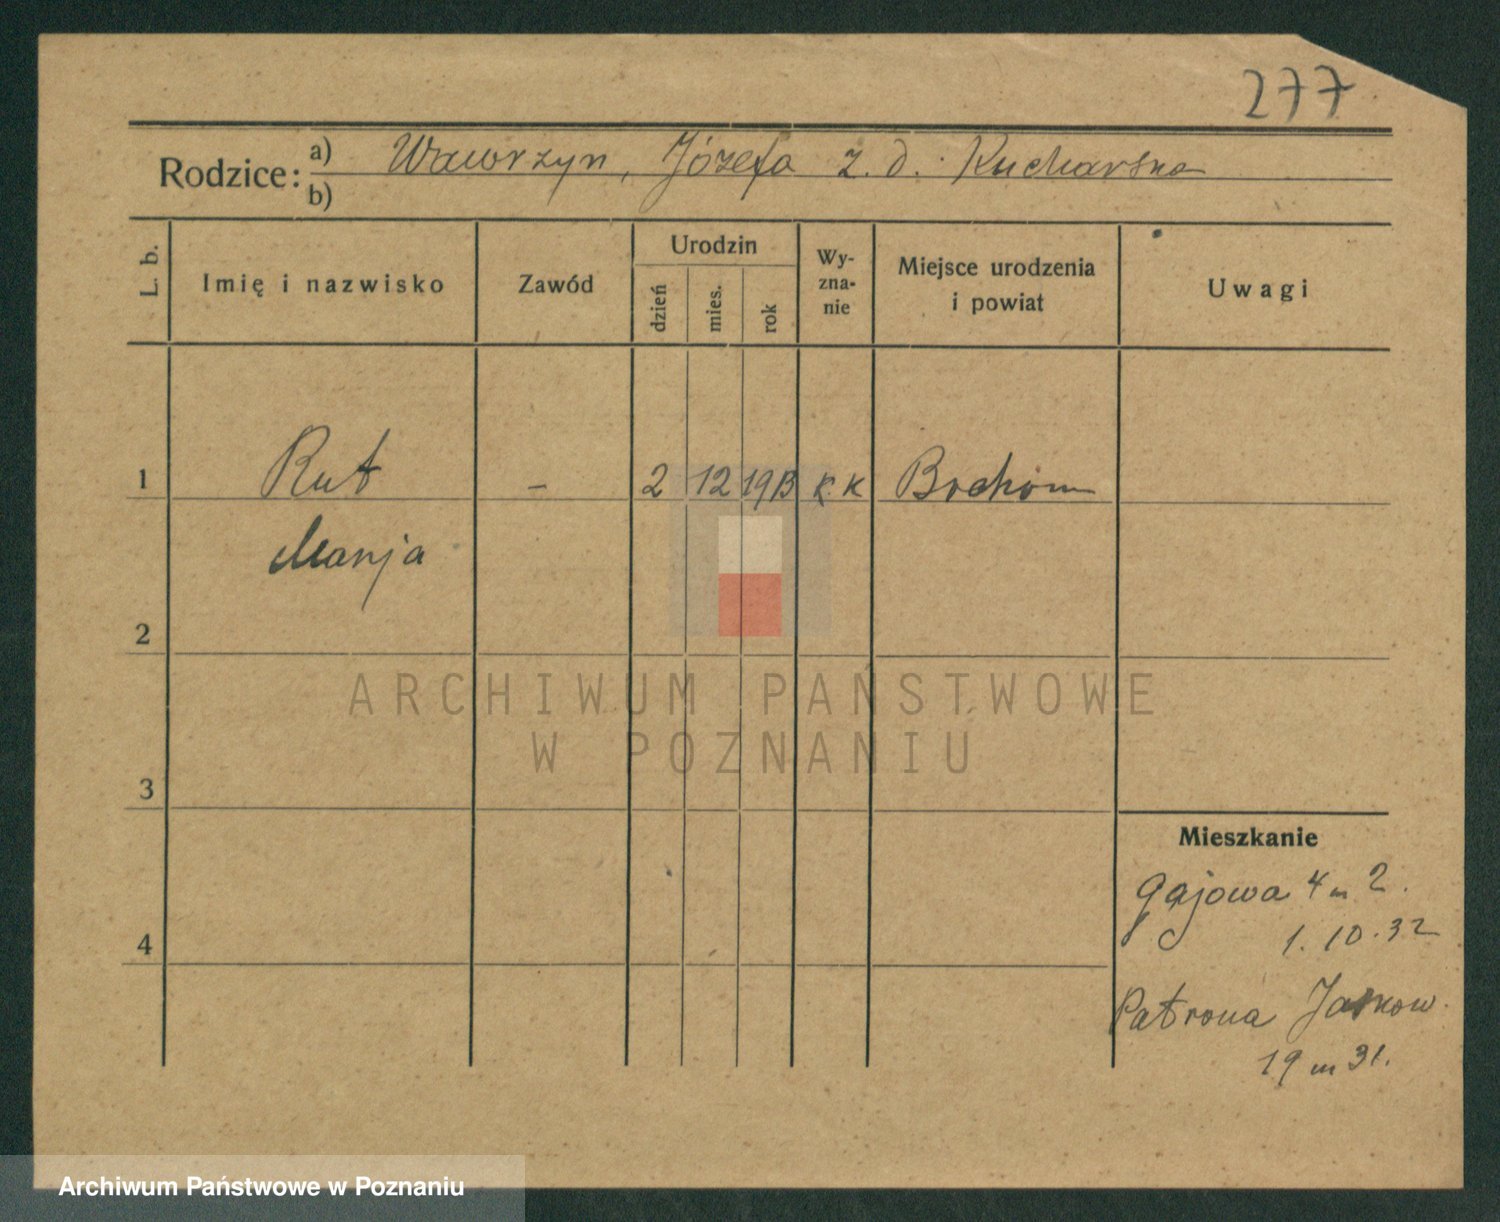 277
Rodzice: a) Wawrzyn, Józefa z. d. Kucharska
b)
L. b.
Imię i nazwisko
Zawód
Urodzin
dzień
mies.
rok
Wy-
zna-
nie
Miejsce urodzenia
i powiat
Uwagi
1 Rut – 2 12 1913 K. K Bochóm
Marja
2
ARCHIWUM PAŃSTWOWE
W POZNANIU
3
Mieszkanie
Gajowa 4 m 2.
1. 10. 32
4
Patrona Jackow.
19 m 31.
Archiwum Państwowe w Poznaniu